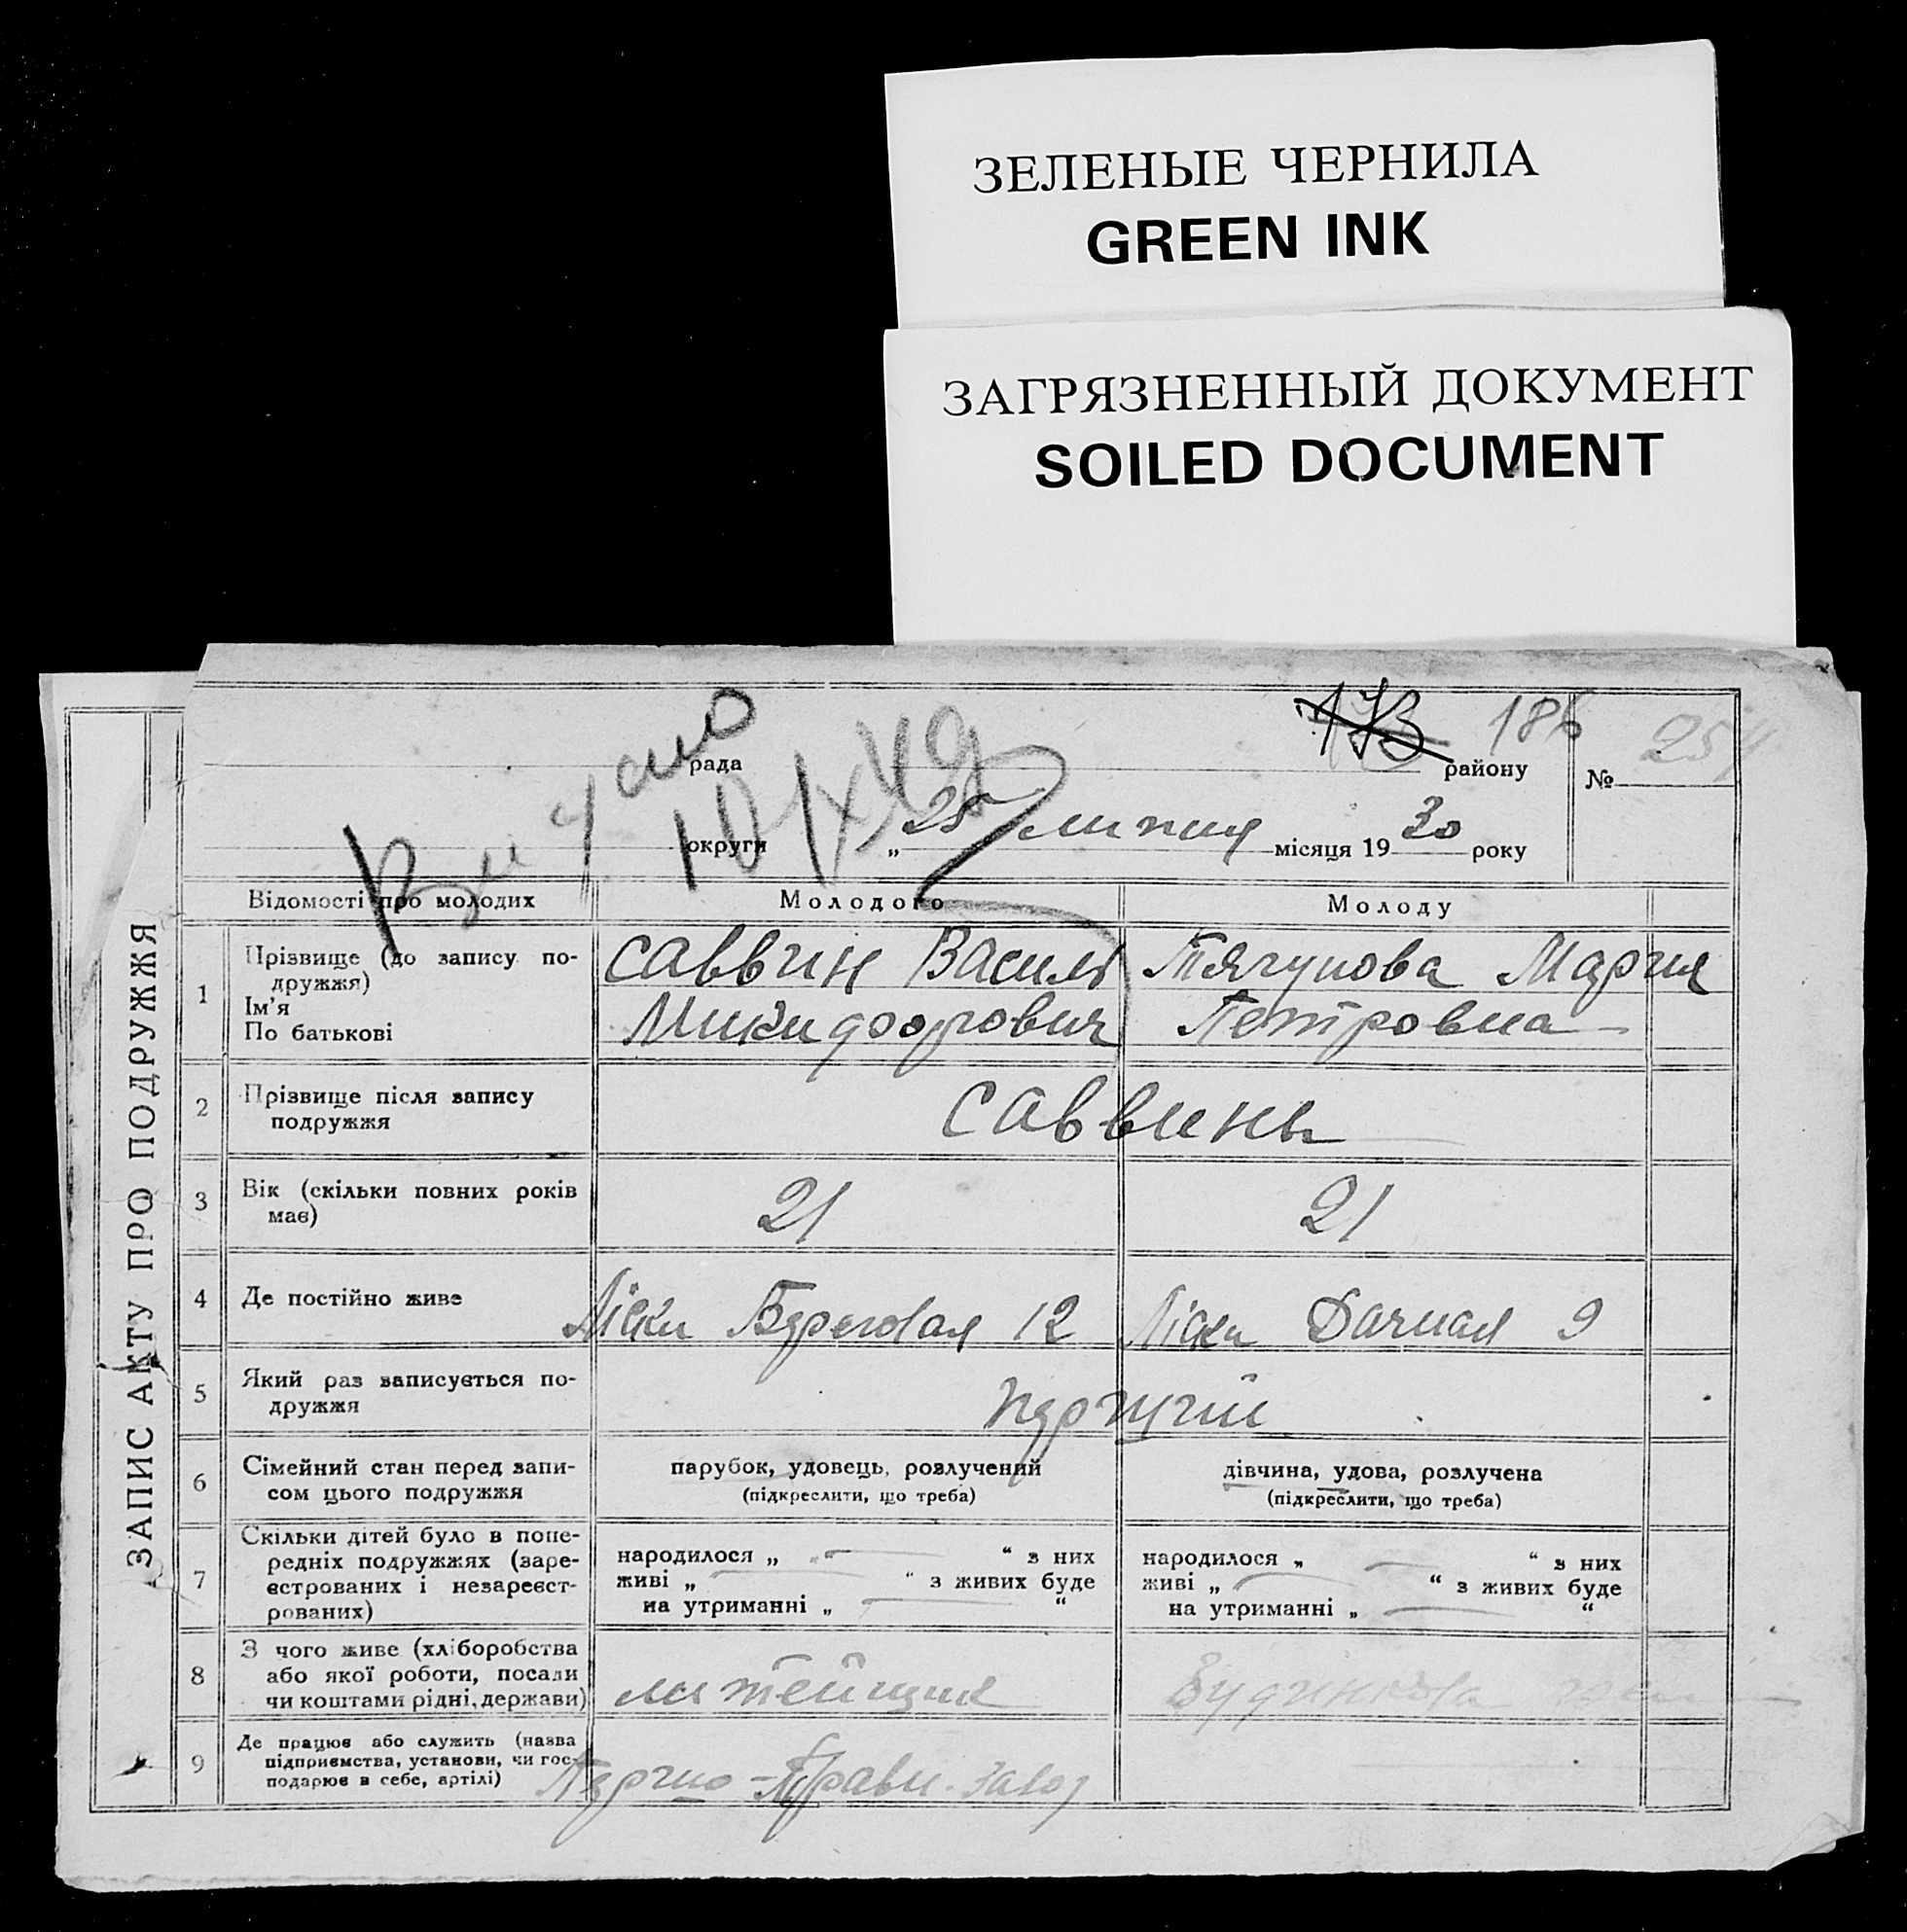 ЗЕЛЕНЫЕ ЧЕРНИЛА
GREEN INK
ЗАГРЯЗНЕННЫЙ ДОКУМЕНТ
SOILED DOCUMENT
ЗАПИС АКТУ ПРО ПОДРУЖЖЯ
рада 173 району 186 № 254
округи „25 липня місяця 1930 року
Відомості про молодих Молодого Молоду
1 Прізвище (до запису по- Саввин Василь Тягунова Мария
дружжя)
Ім’я Микифорович Петровна
По батькові
2 Прізвище після запису Саввины
подружжя
3 Вік (скільки повних років 21 21
має)
4 Де постійно живе Ліски Береговая 12 Ліски Дачная 9
5 Який раз записується по- перший
дружжя
6 Сімейний стан перед запи- парубок, удовець, розлучений дівчина, удова, розлучена
сом цього подружжя (підкреслити, що треба) (підкреслити, що треба)
7 Скільки дітей було в попе-
редніх подружжях (заре- народилося „ “ з них народилося „ “ з них
єстрованих і незареєст- живі „ “ з живих буде живі „ “ з живих буде
рованих) на утриманні „ “ на утриманні „ “
8 З чого живе (хліборобства
або якої роботи, посади литейщик
чи коштами рідні, держави)
9 Де працює або служить (назва
підприємства, установи, чи гос-
подарює в себе, артілі) завод